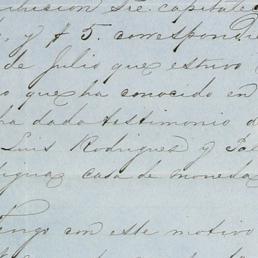 Sre. capitule
y f 5. correspondi
de Julio que estuvo
o que ha conocido en
ha dada testimonio d
Luis Rodrigues y Pal
tigua casa de moneda
Tengo con este motivo